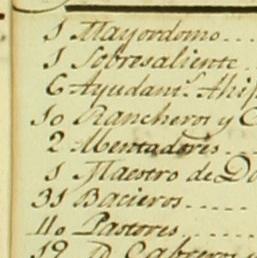 1 Mayordomo...
1 Sobresaliente.
6 Ayudant.s Ahi
10 Rancheros y C
2 Mentadores..
1 Maestro de Do
31 Bacieros.....
110 Pastores.....
12 D. Cabreros